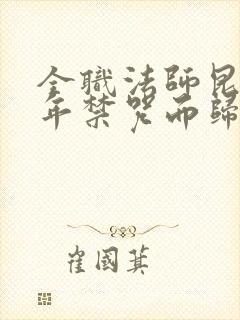 全職法師昆
年禁咒而歸
崔國萁